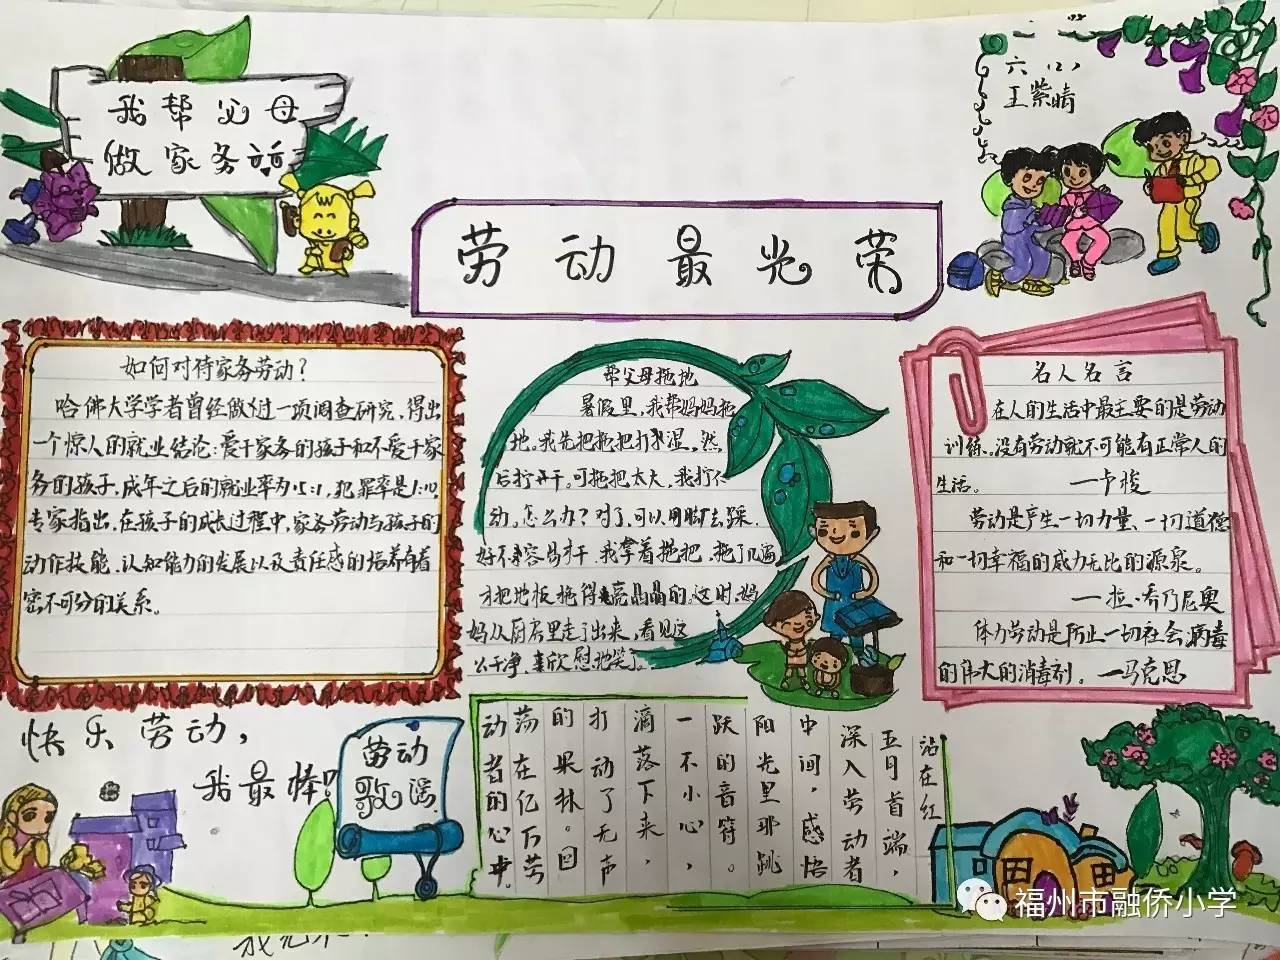 我帮父母
做家务
六(1)
王紫晴
劳动最光荣
如何对待家务劳动？
哈佛大学学者曾经做过一项调查研究,得出
一个惊人的就业结论:爱干家务的孩子和不爱干家
务的孩子,成年之后的就业率为15:1,犯罪率是1:10。
专家指出,在孩子的成长过程中,家务劳动与孩子的
动作技能、认知能力的发展以及责任感的培养有着
密不可分的关系。
帮父母拖地
暑假里,我帮妈妈拖
地。我先把拖把打湿,然
后拧干。可拖把太大,我拧不
动。怎么办？对了,可以用脚去踩.
好不容易才干,我拿着拖把,拖了几遍
才把地板拖得亮晶晶的。这时,妈
妈从厨房里走了出来,看见这
么干净,欣慰地笑了。
名人名言
在人的生活中最主要的是劳动
训练。没有劳动就不可能有正常人的
生活。 —卢梭
劳动是产生一切力量、一切道德
和一切幸福的威力无比的源泉。
—拉·乔乃尼奥
体力劳动是防止一切社会病毒
的伟大的消毒剂。—马克思
快乐劳动,
我最棒!
劳动
歌谣
站在红
五月首端,
深入劳动者
中间,感悟
阳光里那跳
跃的音符。
一不小心,
滴落下来,
打动了无声
的果林。回
荡在亿万劳
动者的心中。
福州市融侨小学